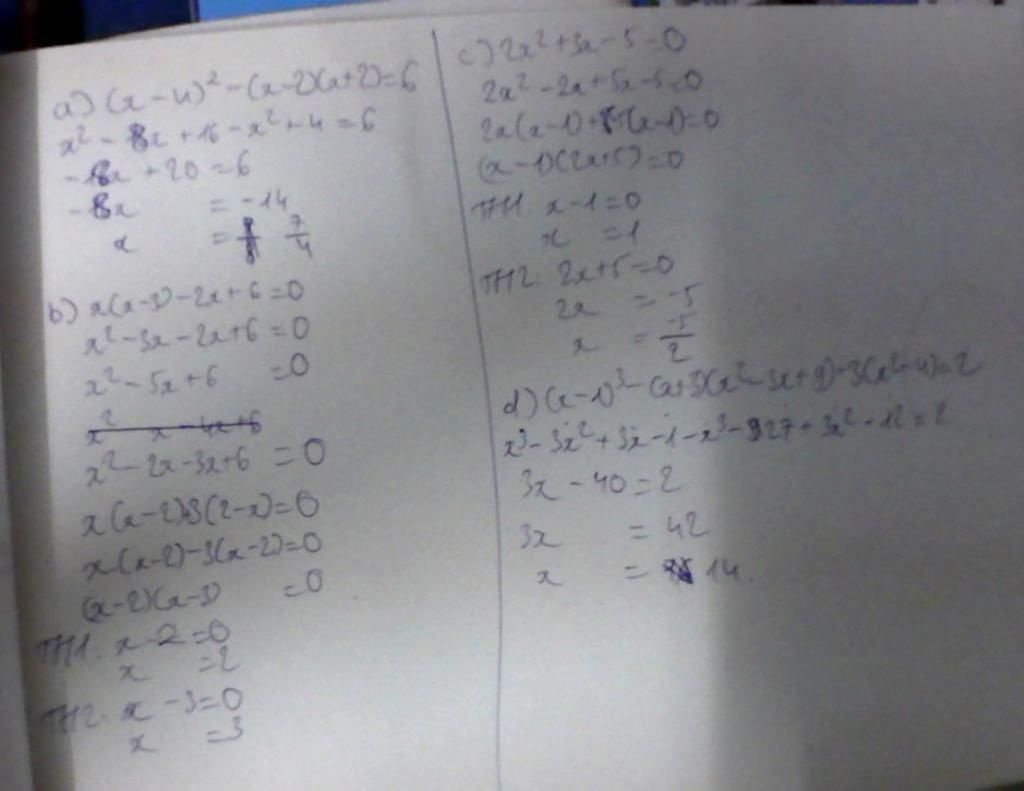 a) (x-4)² - (x-2)(x+2) = 6
x² - 8x + 16 - x² + 4 = 6
-8x + 20 = 6
-8x = -14
x = 7/4
b) x(x-3) - 2x + 6 = 0
x² - 3x - 2x + 6 = 0
x² - 5x + 6 = 0
x² - 2x - 3x + 6 = 0
x(x-2)+3(2-x) = 0
x(x-2) - 3(x-2) = 0
(x-2)(x-3) = 0
TH1: x - 2 = 0
x = 2
TH2: x - 3 = 0
x = 3
c) 2x² + 3x - 5 = 0
2x² - 2x + 5x - 5 = 0
2x(x-1) + 5(x-1) = 0
(x-1)(2x+5) = 0
TH1: x - 1 = 0
x = 1
TH2: 2x + 5 = 0
2x = -5
x = -5/2
d) (x-1)³ - (x+3)(x² - 3x + 9) + 3(x² - 4) = 2
x³ - 3x² + 3x - 1 - x³ - 27 + 3x² - 12 = 2
3x - 40 = 2
3x = 42
x = 14.